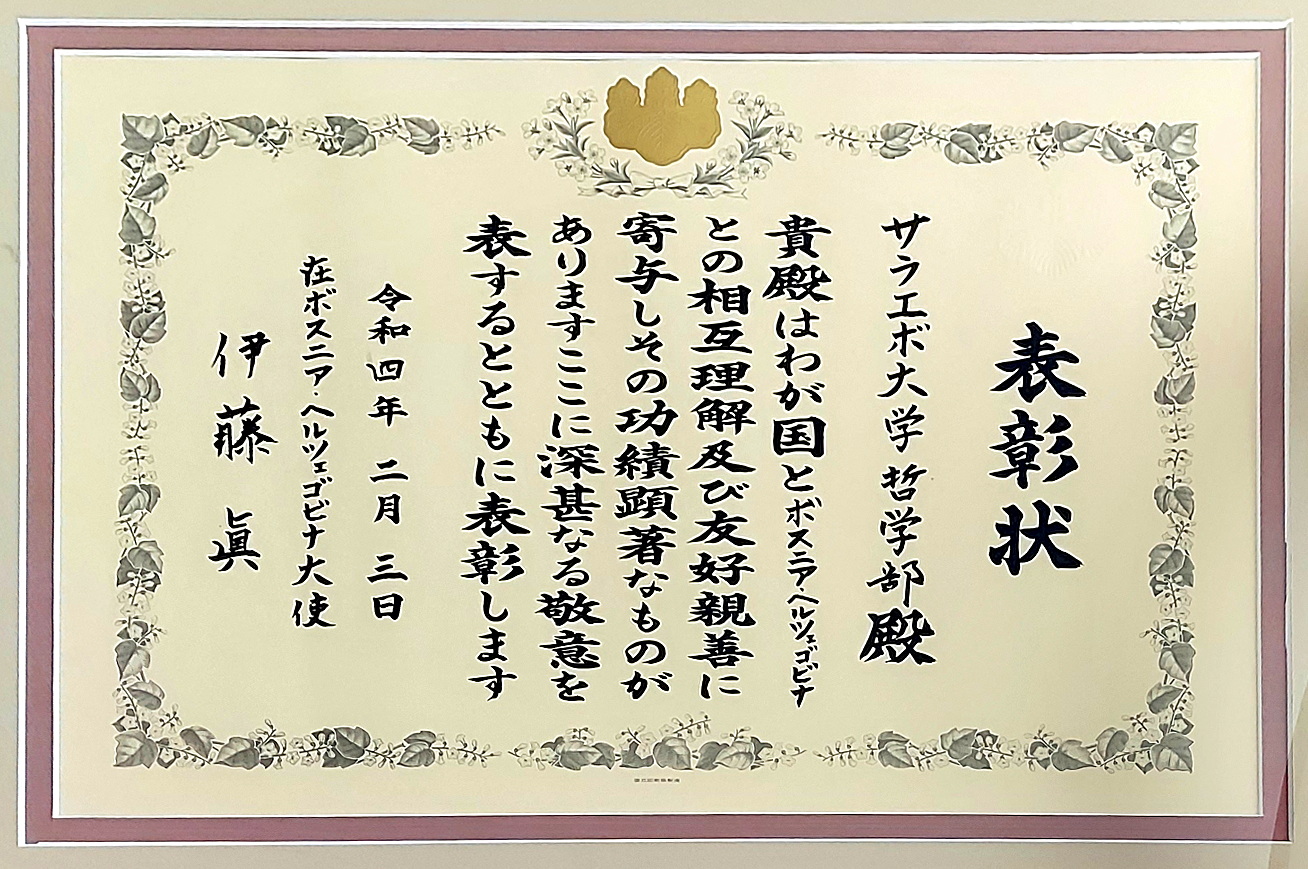 表彰状
サラエボ大学哲学部殿
貴殿はわが国とボスニア・ヘルツェゴビナ
との相互理解及び友好親善に
寄与しその功績顕著なものが
ありますここに深甚なる敬意を
表するとともに表彰します
令和四年 二月 三日
在ボスニア・ヘルツェゴビナ大使
伊藤眞